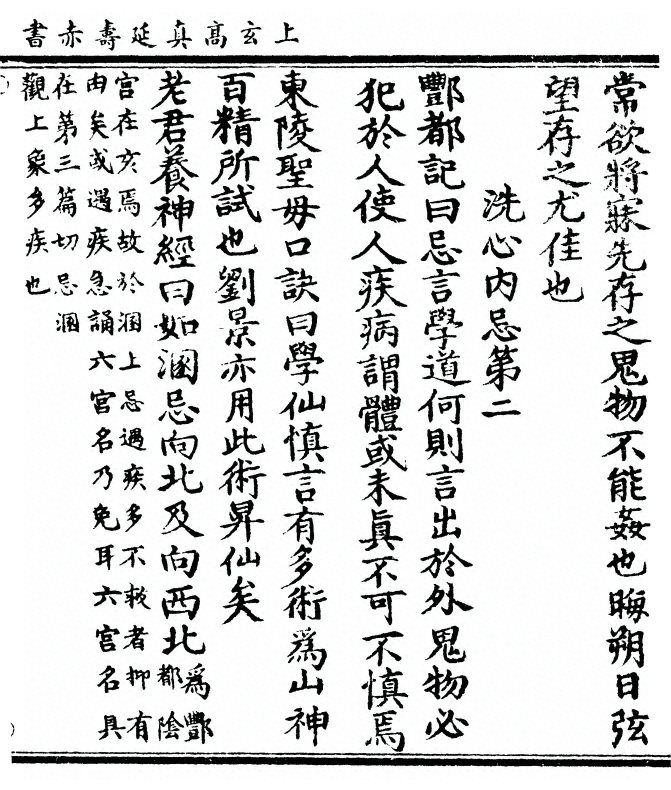 上玄高真延壽赤書
常欲將寐先存之鬼物不能姦也晦朔日弦
望存之尤佳也
洗心内忌第二
酆都記曰忌言學道何則言出於外鬼物必
犯於人使人疾病謂體或未眞不可不慎焉
東陵聖母口訣曰學仙慎言有多術爲山神
百精所試也劉景亦用此術昇仙矣
老君養神經曰如溷忌向北及向西北爲酆
都陰
宫在亥焉故於溷上忌遇疾多不救者抑有
由矣或遇疾急誦六宫名乃免耳六宫名具
在第三篇切忌溷
觀上象多疾也